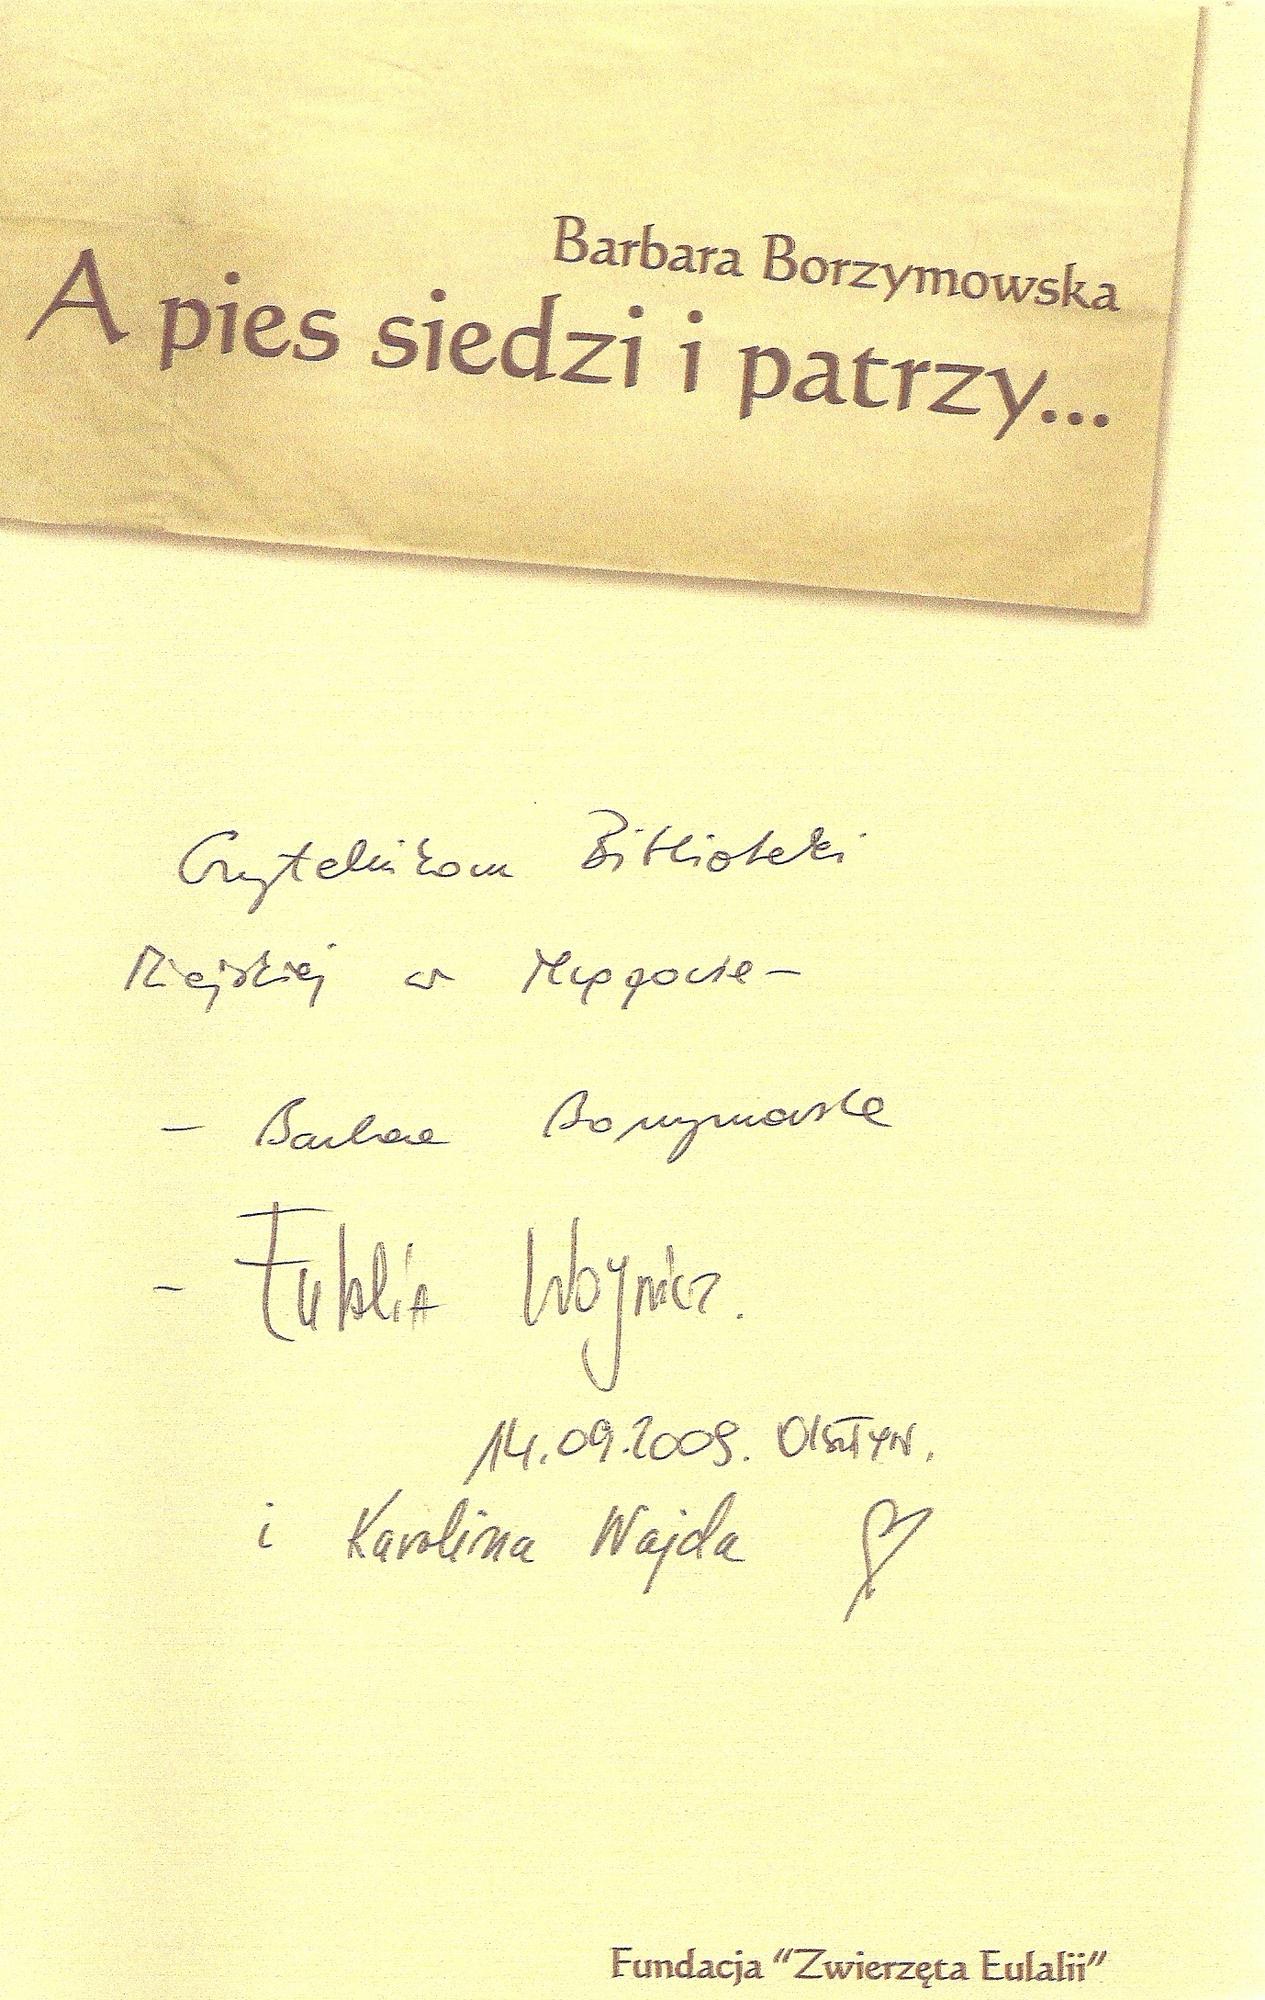 Barbara Borzymowska
A pies siedzi i patrzy...
Czytelnikom Biblioteki
Miejskiej w Mrągowie –
– Barbara Borzymowska
– Eulalia Woynicz.
14.09.2009. Olsztyn.
i Karolina Wajda
Fundacja "Zwierzęta Eulalii"